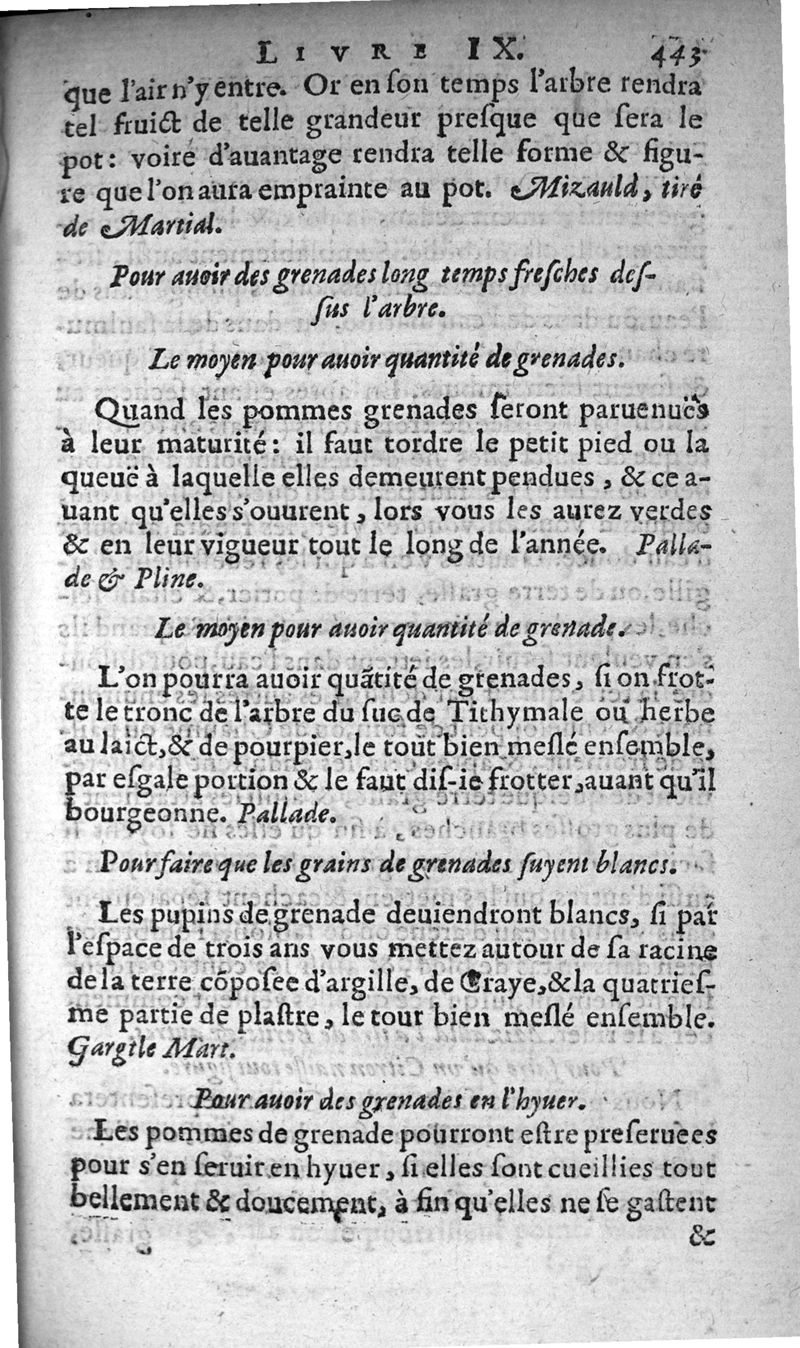 LIVRE IX. 443
que l'air n'y entre. Or en ſon temps l'arbre rendra
tel fruict de telle grandeur preſque que ſera le
pot: voire d'auantage rendra telle forme & figu-
re que l'on aura emprainte au pot. Mizauld, tiré
de Martial.
Pour auoir des grenades long temps freſches deſ-
ſus l'arbre.
Le moyen pour auoir quantité de grenades.
Quand les pommes grenades ſeront paruenuës
à leur maturité: il faut tordre le petit pied ou la
queuë à laquelle elles demeurent pendues, & ce a-
uant qu'elles s'ouurent, lors vous les aurez verdes
& en leur vigueur tout le long de l'année. Palla-
de & Pline.
Le moyen pour auoir quantité de grenade.
L'on pourra auoir quãtité de grenades, ſi on frot-
te le tronc de l'arbre du ſuc de Tithymale ou herbe
au laict, & de pourpier, le tout bien meſlé enſemble,
par eſgale portion & le faut diſ-ie frotter, auant qu'il
bourgeonne. Pallade.
Pour faire que les grains de grenades ſuyent blancs.
Les pupins de grenade deuiendront blancs, ſi par
l'eſpace de trois ans vous mettez autour de ſa racine
de la terre cõpoſee d'argille, de Craye, & la quatrieſ-
me partie de plaſtre, le tout bien meſlé enſemble.
Gargile Mart.
Pour auoir des grenades en l'hyuer.
Les pommes de grenade pourront eſtre preſeruees
pour s'en ſeruir en hyuer, ſi elles ſont cueillies tout
bellement & doucement, à fin qu'elles ne ſe gaſtent
&